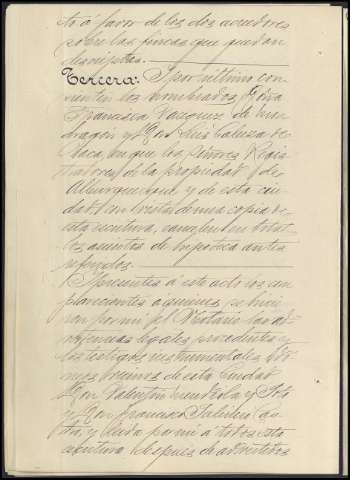 to á favor de los dos acreedores
sobre las fincas que quedan
descriptas.
Tercera: Y por último con
sienten los nombrados Doña
Francisca Vazquez de Mon
dragón y Don Luis Calusa de
Vaca, en que los Señores Regis
tradores de la propiedad de
Alburquerque y de esta ciu
dad, en vista de una copia de
esta escritura, cancelen en tota
los asientos de hipoteca antes
referidos.
Presentes á este acto los com
parecientes á quienes se hicie
ron por mi el Notario las ad
vertencias legales procedentes y
los testigos instrumentales
vecinos de esta Ciudad
Don Valentin Mendiola y Soto
y Don Francisco
y leida por mi á todos esta
escritura despues de advertidos